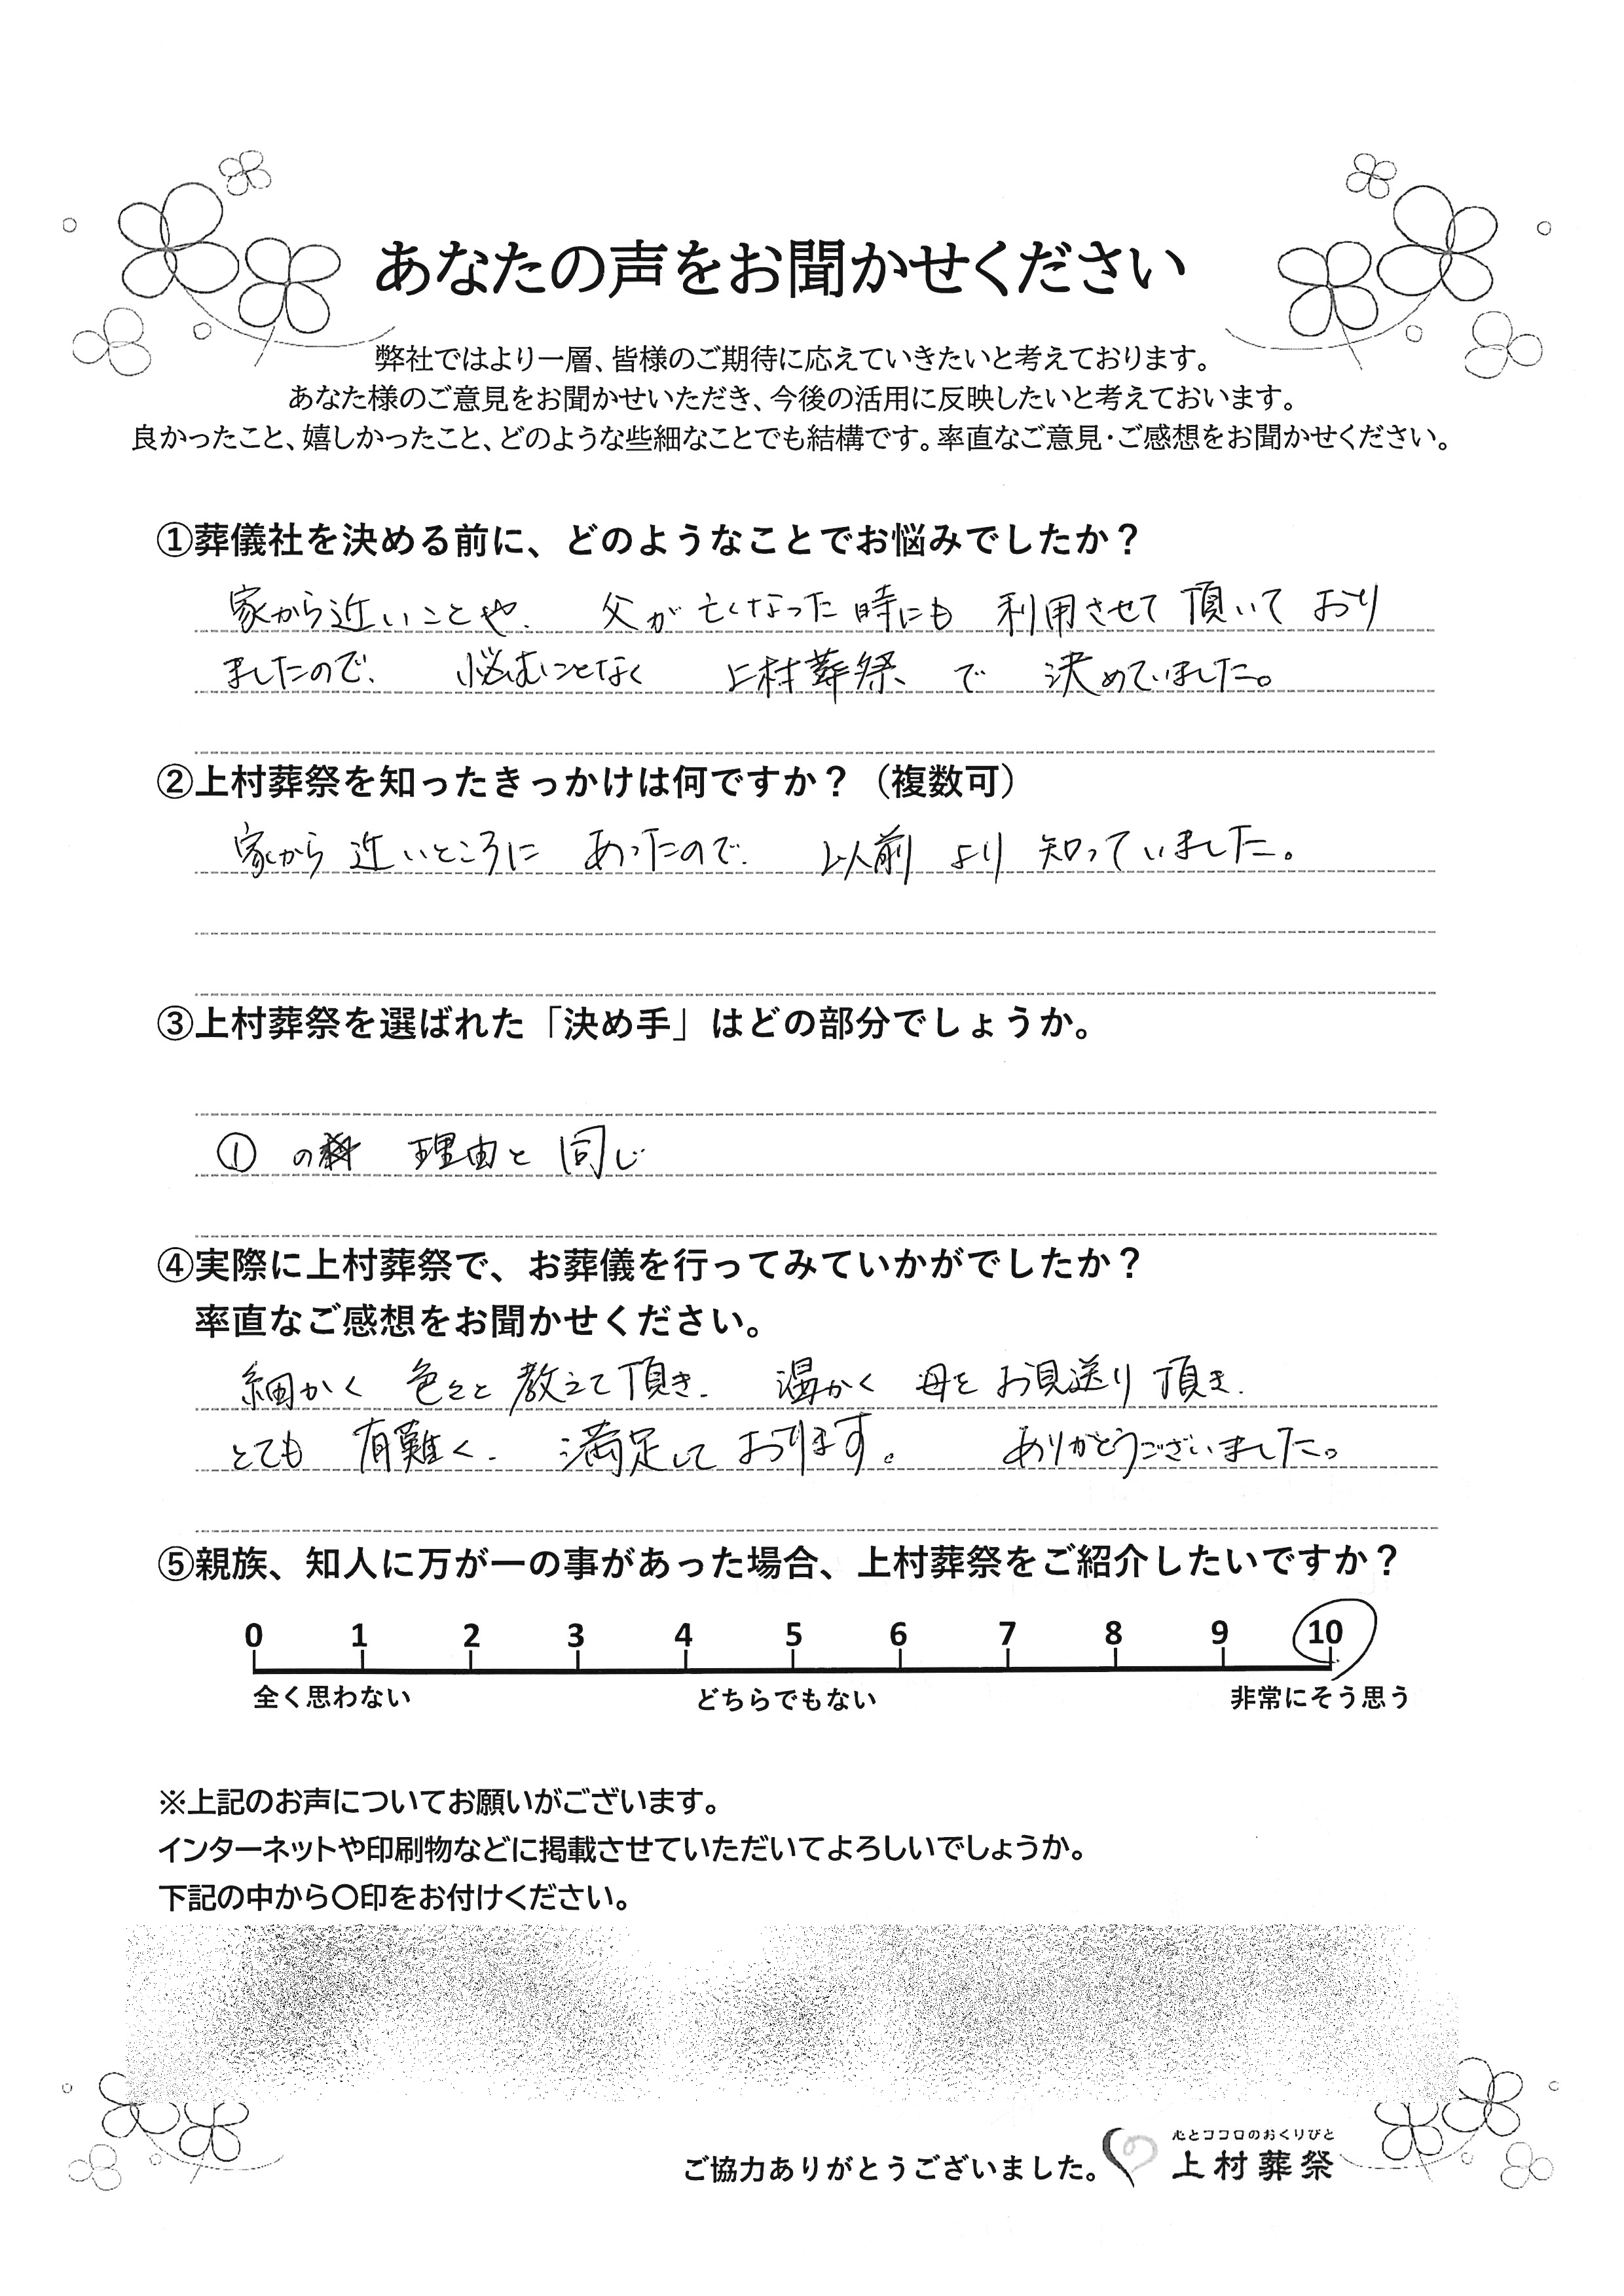 あなたの声をお聞かせください
弊社ではより一層、皆様のご期待に応えていきたいと考えております。
あなた様のご意見をお聞かせいただき、今後の活用に反映したいと考えておいます。
良かったこと、嬉しかったこと、どのような些細なことでも結構です。率直なご意見・ご感想をお聞かせください。
①葬儀社を決める前に、どのようなことでお悩みでしたか？
家から近いことや、父が亡くなった時にも利用させて頂いており
ましたので、悩むことなく上村葬祭で決めていました。
②上村葬祭を知ったきっかけは何ですか？（複数可）
家から近いところにあったので、以前より知っていました。
③上村葬祭を選ばれた「決め手」はどの部分でしょうか。
①の理由と同じ
④実際に上村葬祭で、お葬儀を行ってみていかがでしたか？
率直なご感想をお聞かせください。
細かく色々と教えて頂き、温かく母をお見送り頂き、
とても有難く、満足しております。ありがとうございました。
⑤親族、知人に万が一の事があった場合、上村葬祭をご紹介したいですか？
0 1 2 3 4 5 6 7 8 9 10
全く思わない どちらでもない 非常にそう思う
※上記のお声についてお願いがございます。
インターネットや印刷物などに掲載させていただいてよろしいでしょうか。
下記の中から〇印をお付けください。
心とココロのおくりびと
ご協力ありがとうございました。 上村葬祭